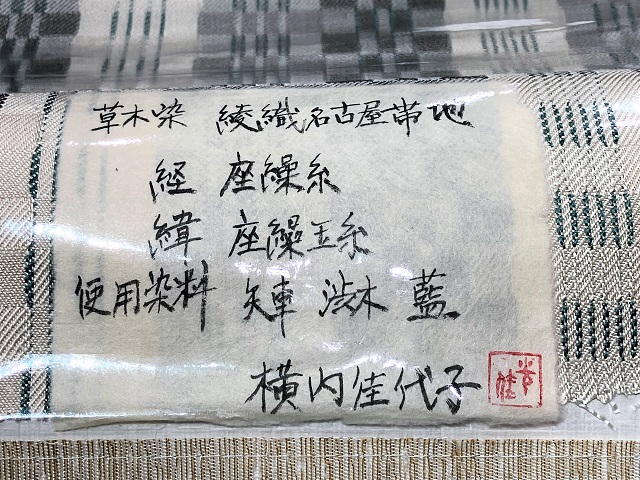 草木染 綾織名古屋帯地
経 座繰糸
緯 座繰玉糸
使用染料 矢車 渋木 藍
横内佳代子